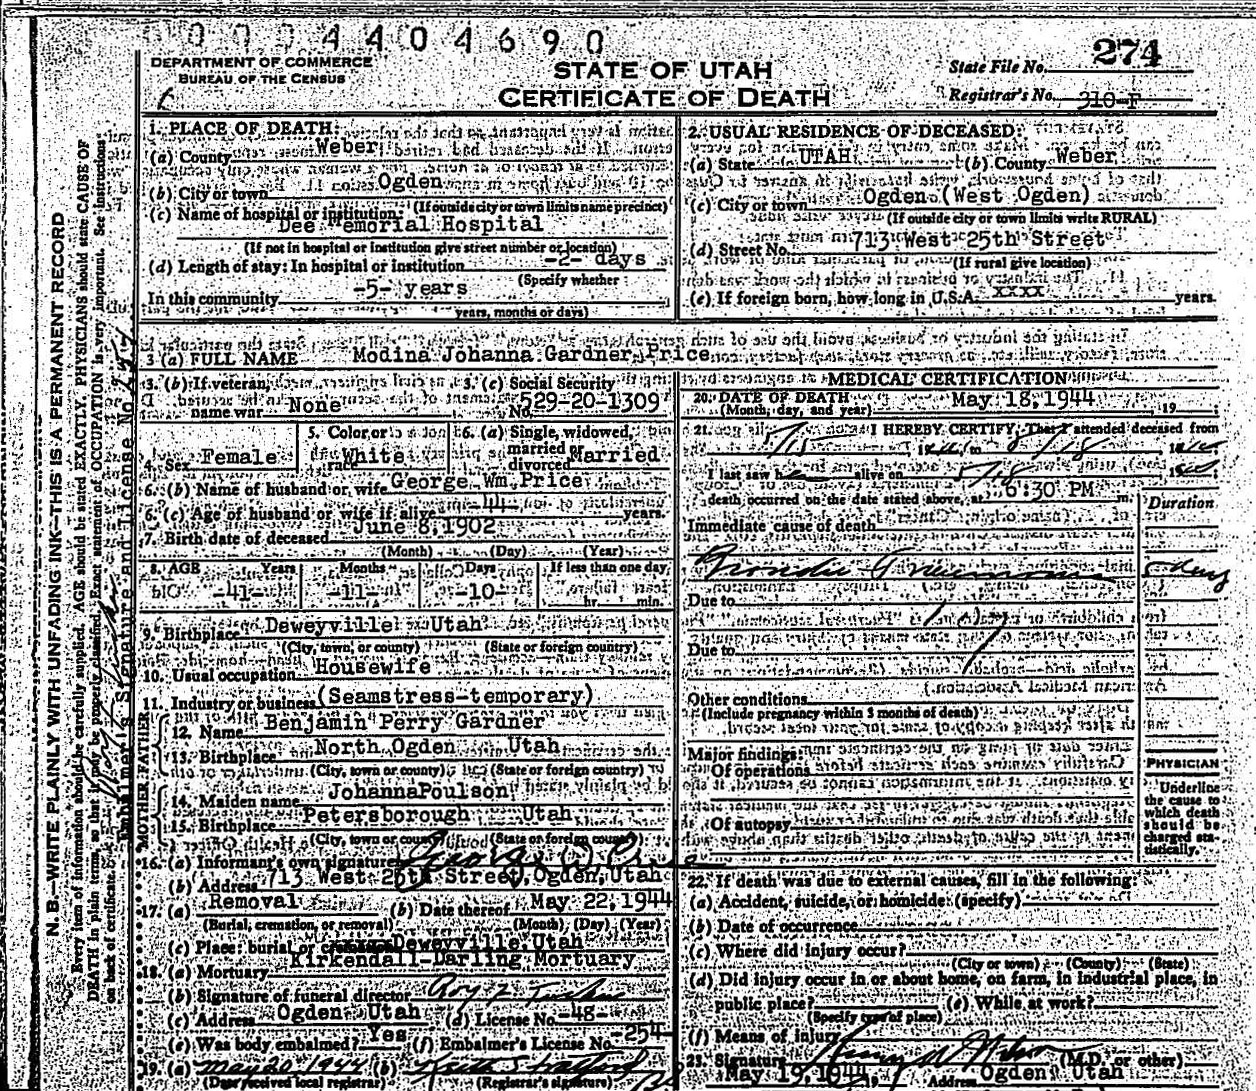 0004404690
DEPARTMENT OF COMMERCE
BUREAU OF THE CENSUS
STATE OF UTAH
CERTIFICATE OF DEATH
State File No. 274
Registrar's No. 310-F
N. B.—WRITE PLAINLY WITH UNFADING INK—THIS IS A PERMANENT RECORD
Every item of information should be carefully supplied. AGE should be stated EXACTLY. PHYSICIANS should state CAUSE OF
DEATH in plain terms, so that it may be properly classified. Exact statement of OCCUPATION is very important. See instructions
on back of certificate.
Embalmer's Signature and License No.
1. PLACE OF DEATH:
(a) County Weber
(b) City or town Ogden
(If outside city or town limits name precinct)
(c) Name of hospital or institution:
Dee Memorial Hospital
(If not in hospital or institution give street number or location)
(d) Length of stay: In hospital or institution -2- days
(Specify whether
In this community -5- years
years, months or days)
2. USUAL RESIDENCE OF DECEASED:
(a) State UTAH (b) County Weber
(c) City or town Ogden (West Ogden)
(If outside city or town limits write RURAL)
(d) Street No. 713 West 25th Street
(If rural give location)
(e) If foreign born, how long in U.S.A. xxxx years.
3 (a) FULL NAME Modina Johanna Gardner Price
3. (b) If veteran, name war None
3. (c) Social Security No. 529-20-1309
4. Sex Female
5. Color or race White
6. (a) Single, widowed, married or divorced Married
6. (b) Name of husband or wife George Wm Price
6. (c) Age of husband or wife if alive -44- years.
7. Birth date of deceased June 8, 1902
(Month) (Day) (Year)
8. AGE Years Months Days If less than one day
-41- -11- -10- hr. min.
9. Birthplace Deweyville Utah
(City, town, or county) (State or foreign country)
10. Usual occupation Housewife
11. Industry or business (Seamstress-temporary)
FATHER
12. Name Benjamin Perry Gardner
13. Birthplace North Ogden Utah
(City, town or county) (State or foreign country)
MOTHER
14. Maiden name Johanna Poulson
15. Birthplace Petersborough Utah
(City, town or county) (State or foreign country)
16. (a) Informant's own signature George W Price
(b) Address 713 West 25th Street, Ogden, Utah
17. (a) Removal (b) Date thereof May 22, 1944
(Burial, cremation, or removal) (Month) (Day) (Year)
(c) Place: burial or Deweyville, Utah
18. (a) Mortuary Kirkendall-Darling Mortuary
(b) Signature of funeral director
(c) Address Ogden Utah (d) License No. -48-
(e) Was body embalmed? Yes (f) Embalmer's License No. -254-
19. (a) May 20 1944 (b)
(Date received local registrar) (Registrar's signature)
MEDICAL CERTIFICATION
20. DATE OF DEATH May 18, 1944
(Month, day, and year) , 19
21. I HEREBY CERTIFY, That I attended deceased from
5/15 to 5/18
I last saw h alive on 5/18
death occurred on the date stated above, at 6:30 PM m.
Duration
Immediate cause of death
Pneumonia 5 days
Due to
Due to
Other conditions
(Include pregnancy within 3 months of death)
Major findings:
Of operations
Of autopsy
PHYSICIAN
Underline
the cause to
which death
should be
charged sta-
tistically.
22. If death was due to external causes, fill in the following:
(a) Accident, suicide, or homicide (specify)
(b) Date of occurrence
(c) Where did injury occur?
(City or town) (County) (State)
(d) Did injury occur in or about home, on farm, in industrial place, in
public place? (e) While at work?
(Specify type of place)
(f) Means of injury
23. Signature (M.D. or other)
May 19, 1944 Address Ogden Utah